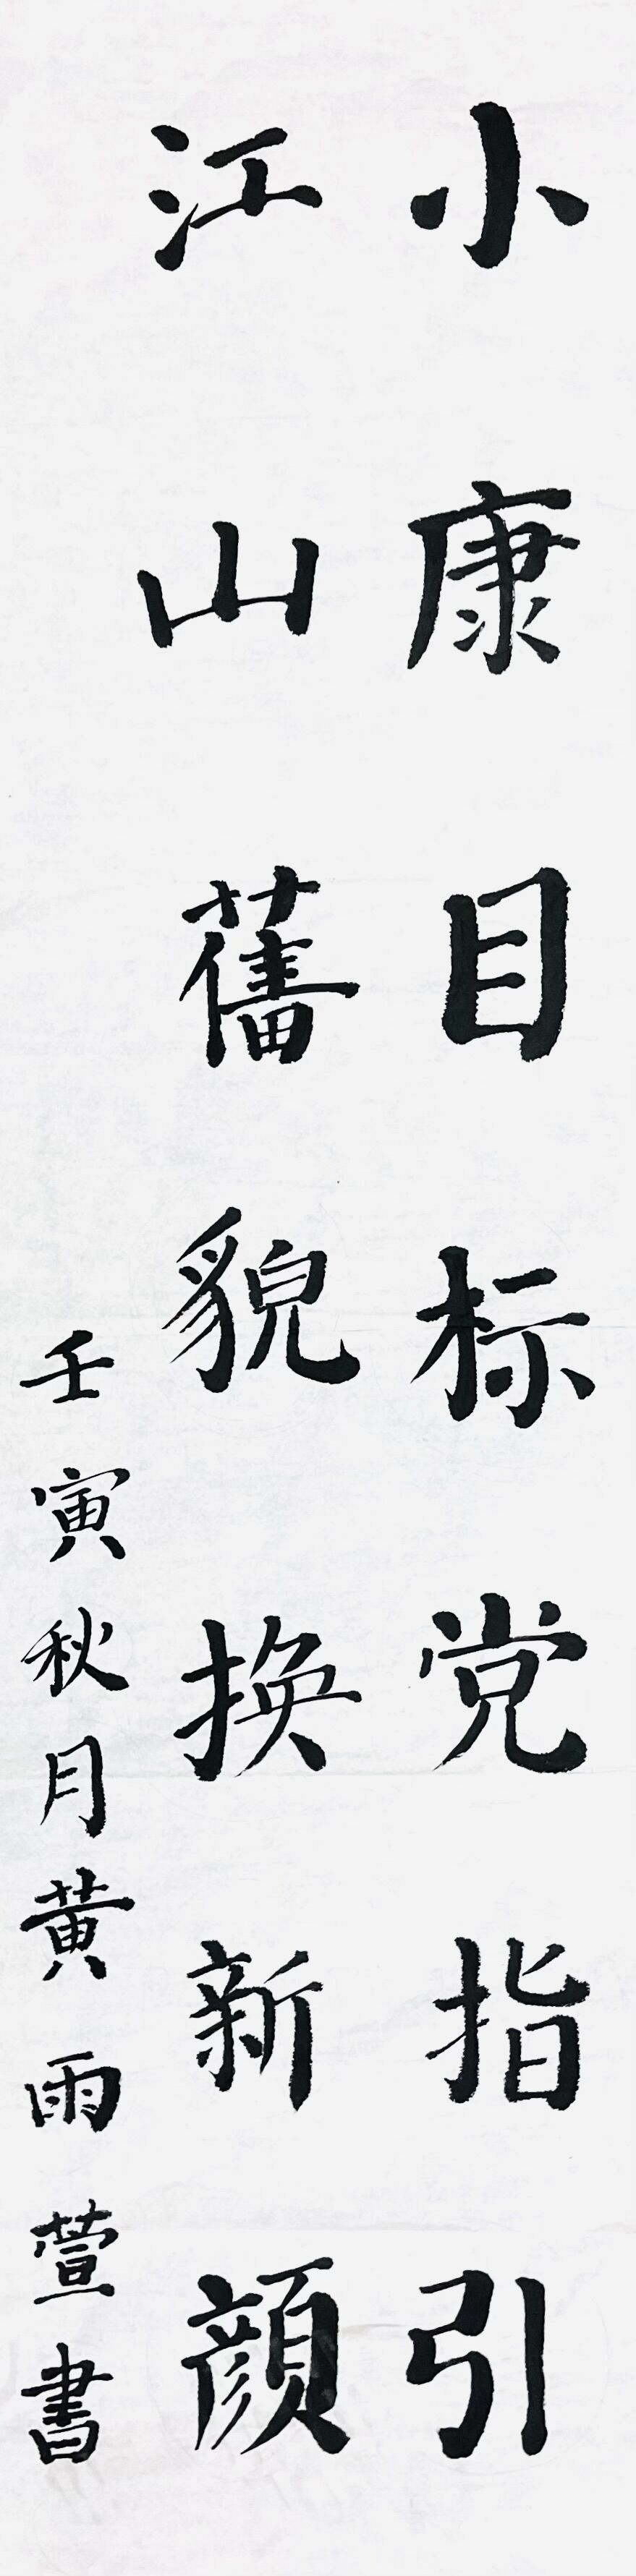 小康目标党指引
江山舊貌换新顔
壬寅秋月黄雨萱書